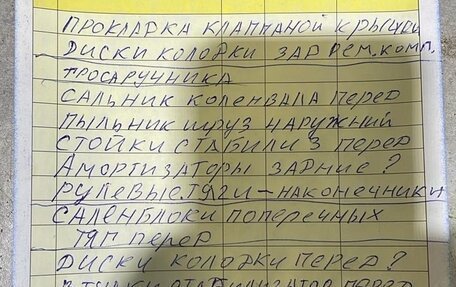 ПРОКЛАДКА КЛАПАНОЙ КРЫШКИ
ДИСКИ КОЛОДКИ ЗАД РЕМ.КОМП.
САЛЬНИК КОЛЕНВАЛА ПЕРЕД
ПЫЛЬНИК ШРУЗ НАРУЖНИЙ
СТОЙКИ СТАБИЛИЗ ПЕРЕД
АМОРТИЗАТОРЫ ЗАДНИЕ ?
РУЛЕВЫЕ ТЯГИ — НАКОНЕЧНИКИ
САЛЕНБЛОКИ ПОПЕРЕЧНЫХ
ТЯГ ПЕРЕД
ДИСКИ КОЛОДКИ ПЕРЕД ?